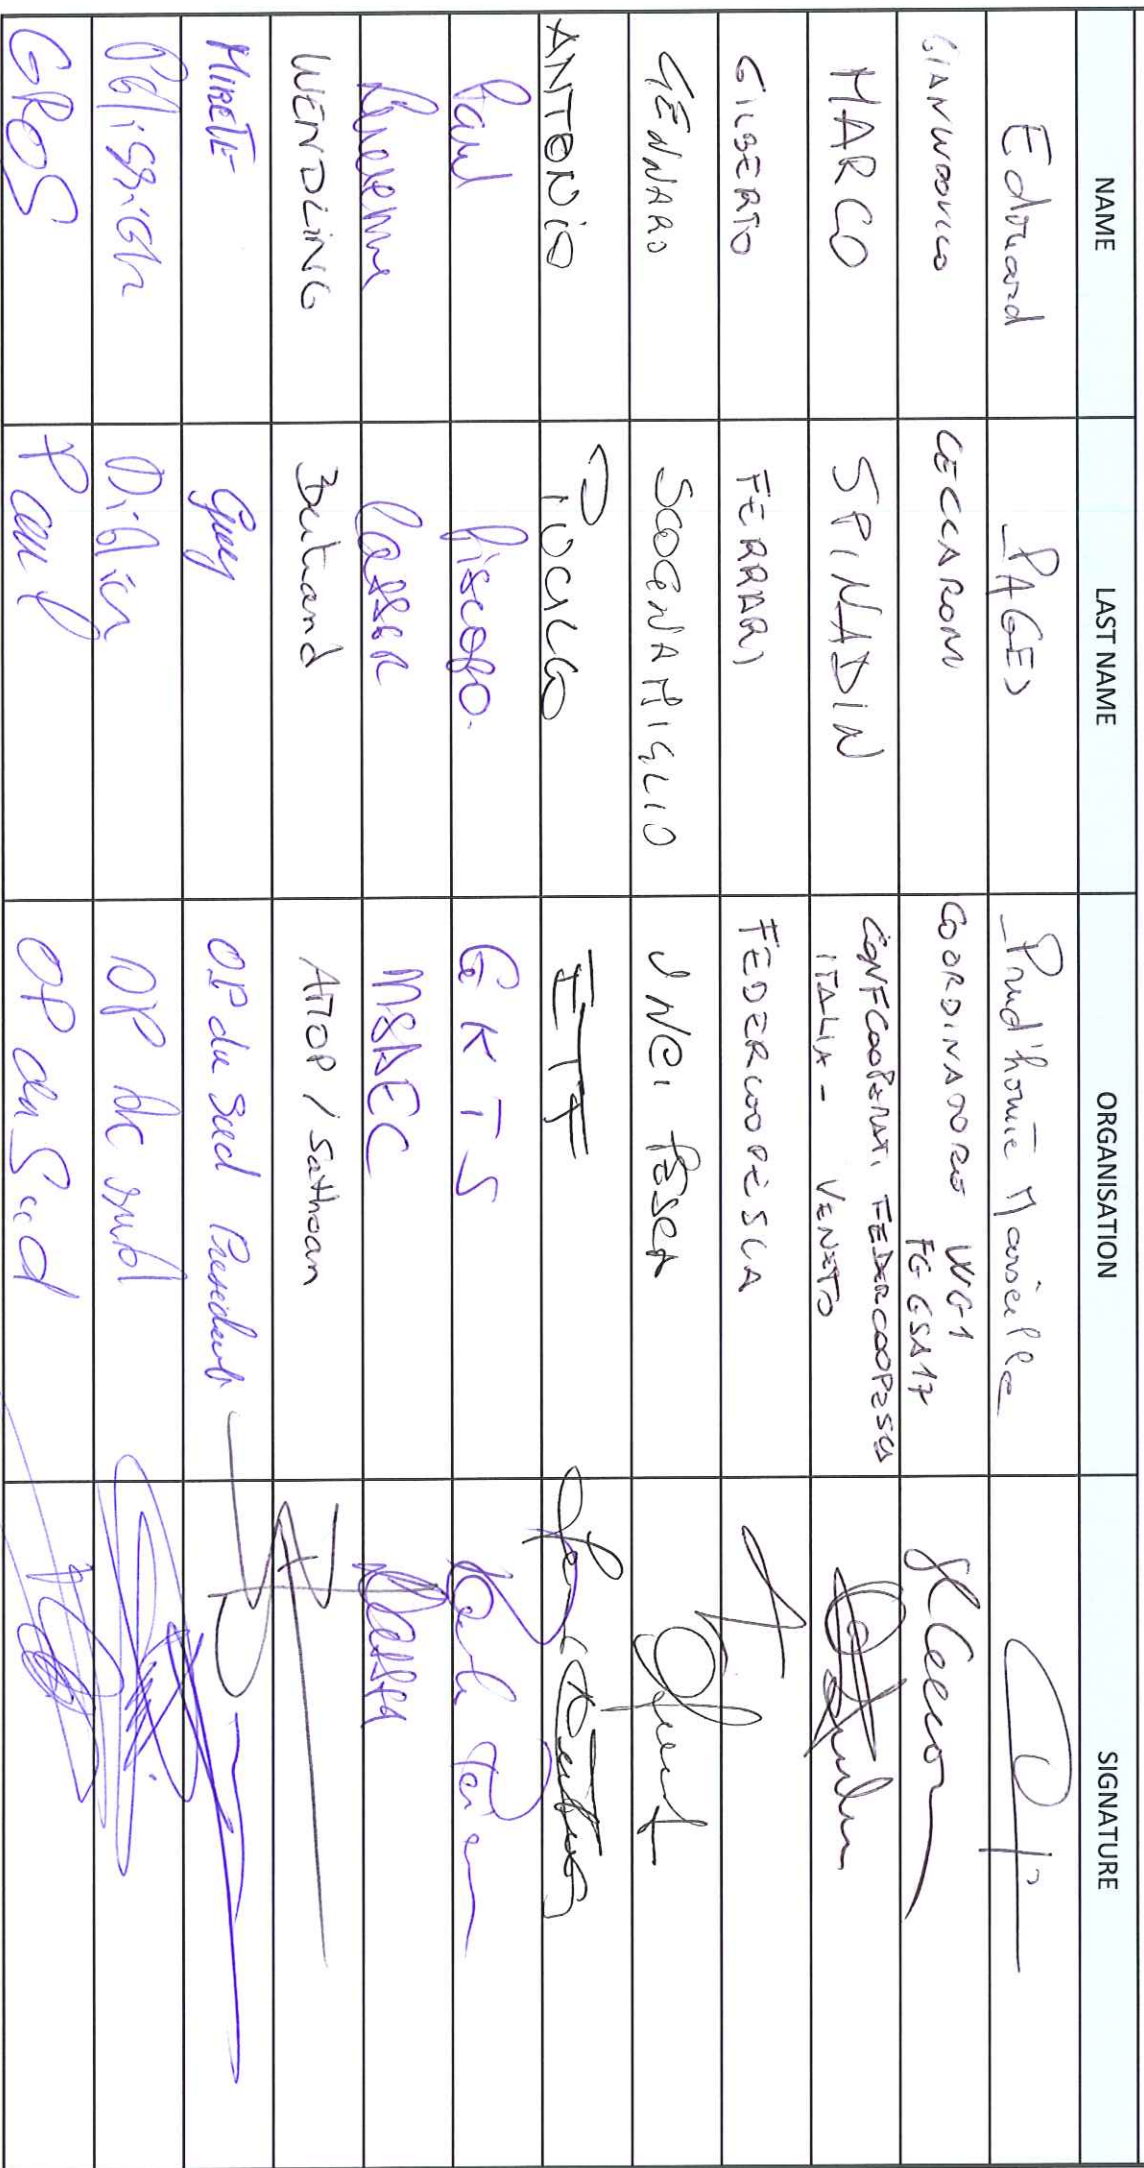 NAME LAST NAME ORGANISATION SIGNATURE
Edouard PAGES Prud'homie Marseille
GIANLUDOVICO CECCARONI COORDINADORE WG1
FG GSA17
MARCO SPINADIN CONFCOOPERATI. FEDERCOOPESCA
ITALIA - VENETO
GILBERTO FERRARI FEDERCOOPESCA
GENNARO SCOGNAMIGLIO UNCI PESCA
ANTONIO PUCILLO ETF
Paul Piscopo. GKTS
Cassar MSAEC
WENDLING Bertrand AMOP / Sathoan
MIRETE Guy OP du Sud President
Didier OP du
GROS Paul OP du Sud